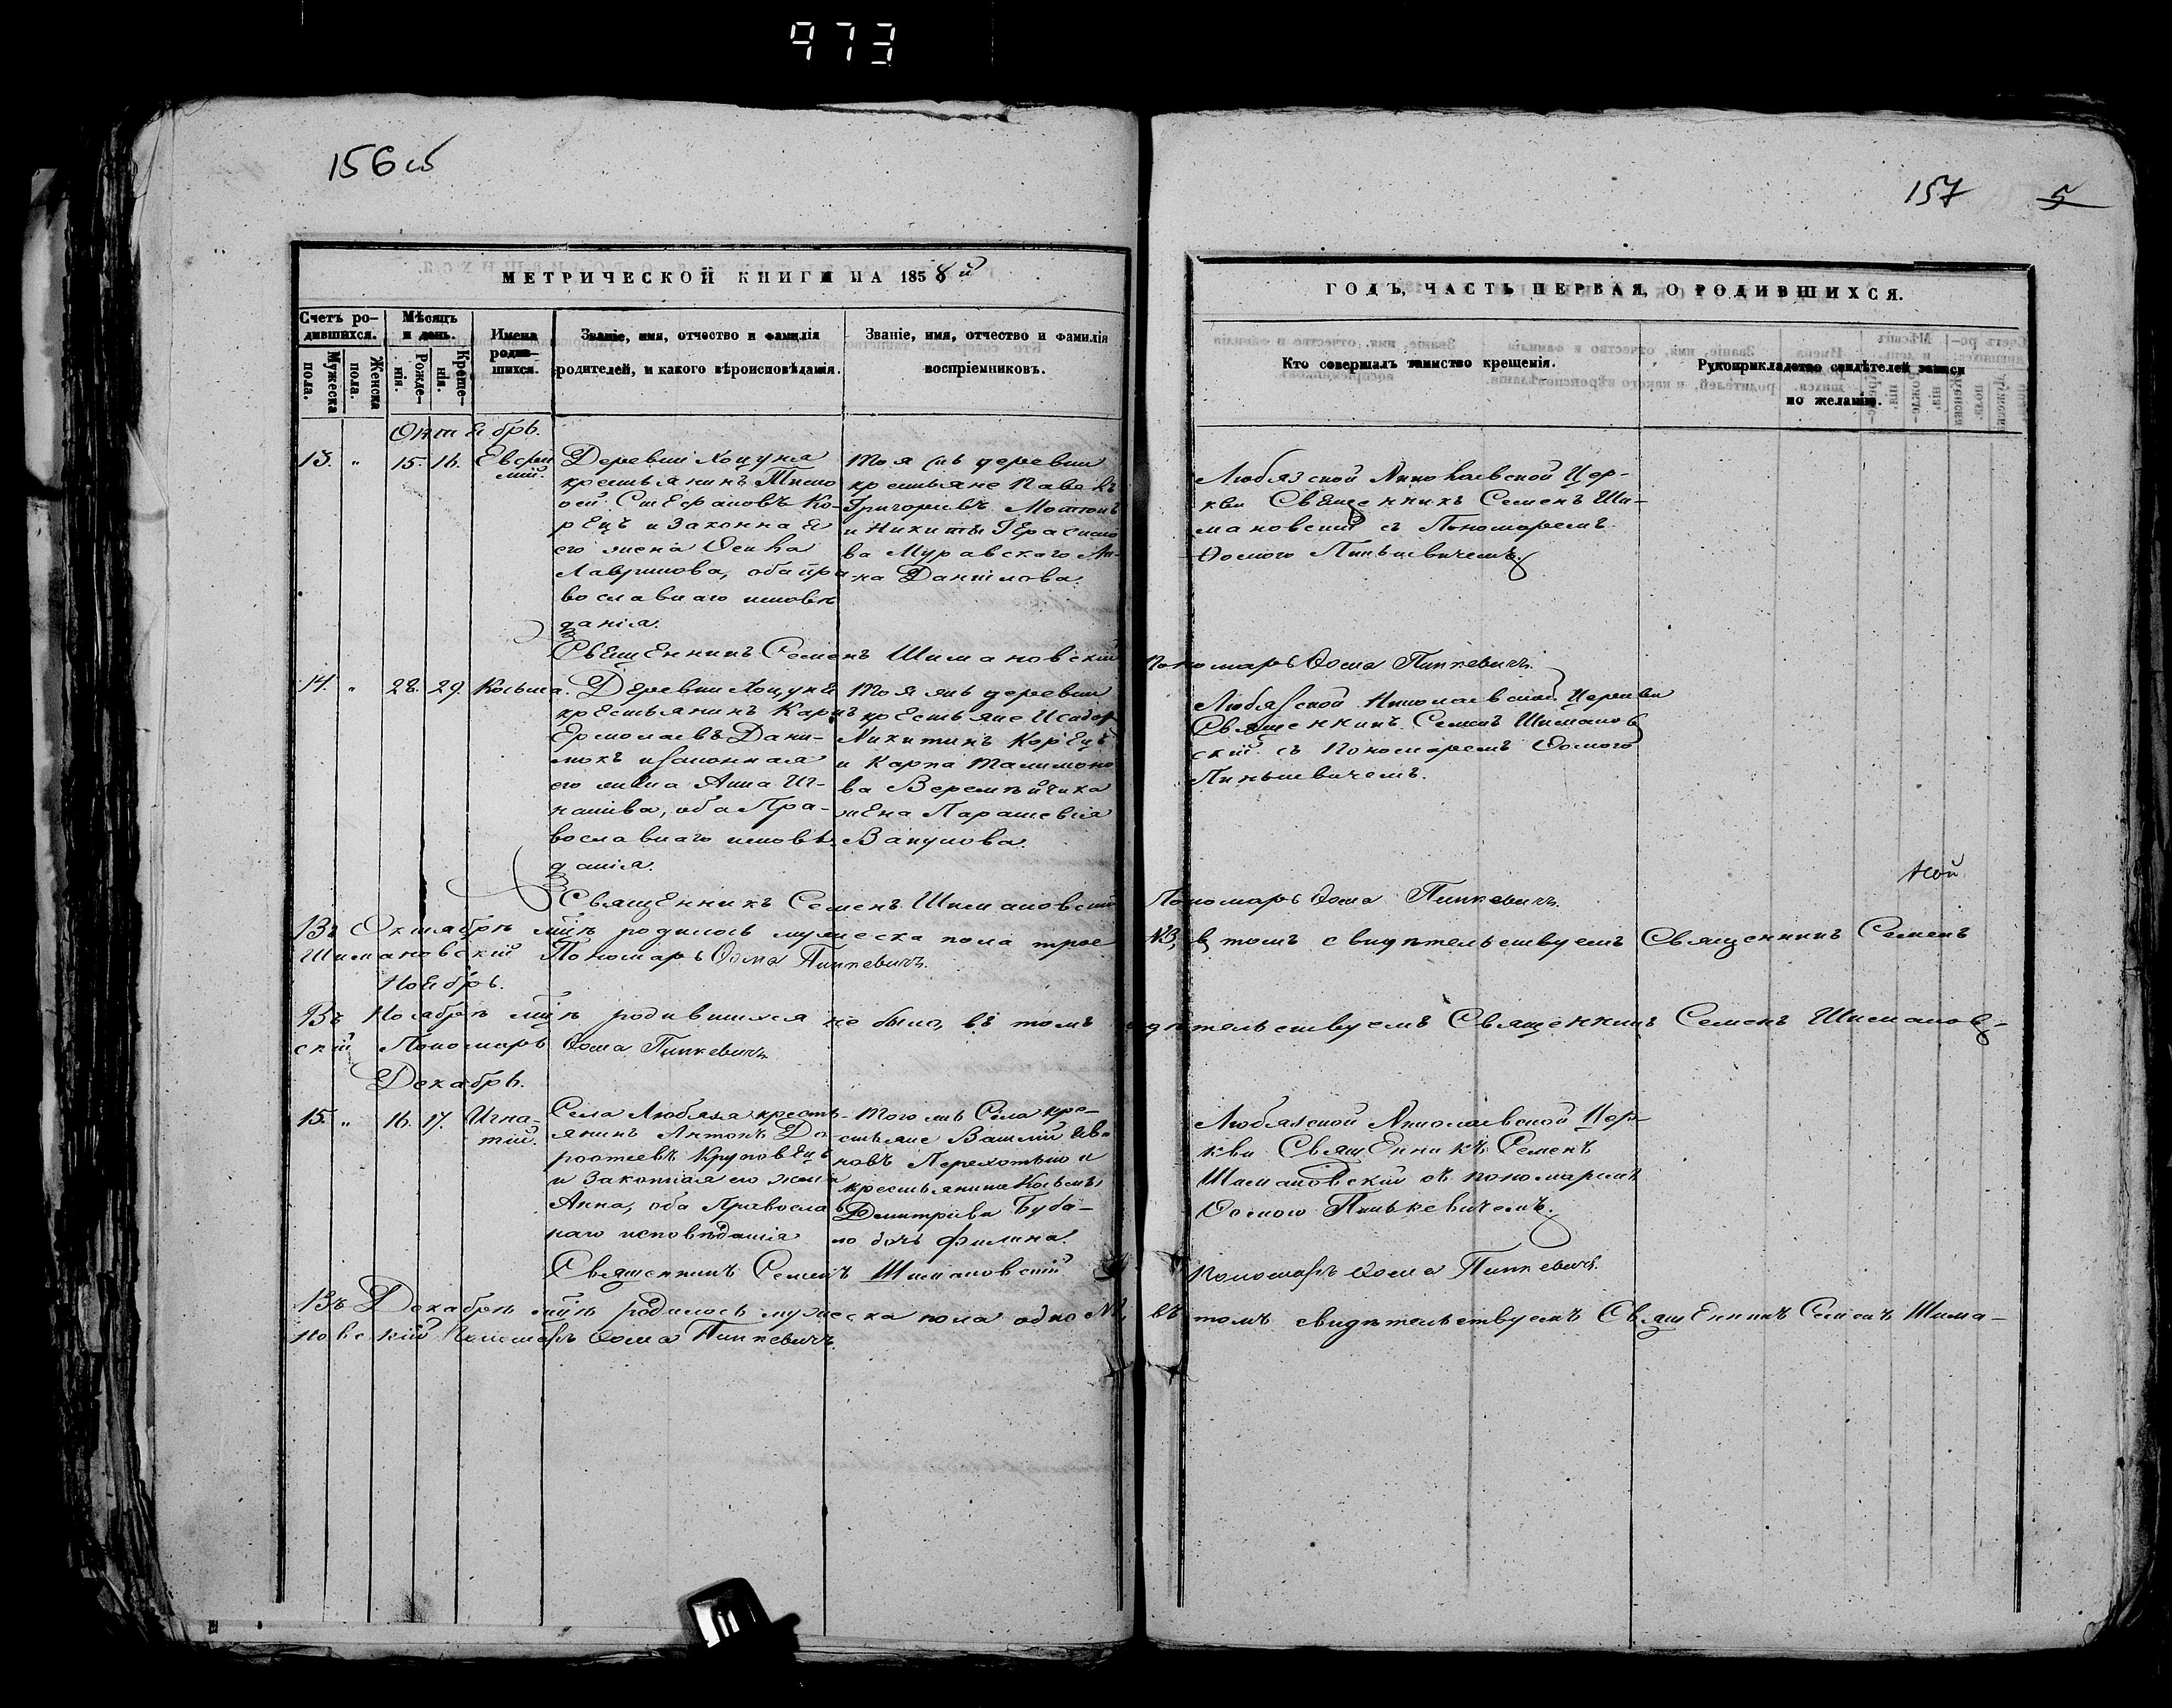 973
156 об
157
5
МЕТРИЧЕСКОЙ КНИГИ НА 1858й
ГОДЪ, ЧАСТЬ ПЕРВАЯ, О РОДИВШИХСЯ.
Счетъ ро-
дившихся.
Мужеска
пола.
Женска
пола.
Мѣсяцъ
и день.
Рожде-
нія.
Креще-
нія.
Имена
родив-
шихся.
Званіе, имя, отчество и фамилія
родителей, и какого вѣроисповѣданія.
Званіе, имя, отчество и фамилія
воспріемниковъ.
Кто совершалъ таинство крещенія.
Рукоприкладство свидѣтелей записи
по желанію.
Октябрь.
13. " 15. 16. Евфи
мій.
Деревни Хоцуня
крестьянинъ Тимо
фей Стефановъ Ко-
рецъ и законная
его жена
Лавринова, оба пра
вославнаго исповѣ
данія.
Тоя жъ деревни
крестьяне Павелъ
Григорьевъ
и Никиты Герасимо
ва Муравского
на Данилова.
Любязской Николаевской Цер-
кви Священникъ Семенъ Ши-
мановскій съ Пономаремъ
Ѳомою Пинькевичемъ.
Священникъ Семенъ Шимановскій
Пономарь Ѳома Пинкевичъ.
14. " 28. 29. Косьма.
Деревни Хоцуня
крестьянинъ Карпъ
Ермолаевъ Дани-
и законная
его жена Анна Иг-
натіва, оба Пра-
вославнаго исповѣ
данія.
Тоя жъ деревни
крестьяне Исидор
Никитинъ Корецъ
и Карпа
ва Веремѣйчика
жена Парасковія
Вакулова.
Любязской Николаевской Церкви
Священникъ Семенъ Шиманов
скій съ Пономаремъ Ѳомою
Пинькевичемъ.
Священникъ Семенъ Шимановскій
Пономарь Ѳома Пинкевичъ.
Въ Октябрѣ мцѣ родилось мужеска пола трое
№3, въ томъ свидѣтельствуемъ Священникъ Семенъ
Шимановскій Пономарь Ѳома Пинкевичъ.
Ноябрь.
Въ Ноябрѣ мцѣ родившихся не было, въ томъ
дѣтельствуемъ Священникъ Семенъ Шиманов-
скій Пономарь Ѳома Пинкевичъ
Декабрь.
15. " 16. 17. Игна-
тій.
Села Любяза кресть-
янинъ Антонъ До-
рофеевъ Круповецъ
и Законная его жена
Анна, оба Православ
наго исповѣданія
Того жъ Села кре-
стьяне Василій Ива
новъ Перехотько и
крестьянина Косьмы
Димитріева Буба-
ло дочь Филина.
Любязской Николаевской Цер-
кви Священникъ Семенъ
Шимановскій съ пономаремъ
Ѳомою Пинькевичемъ.
Священникъ Семенъ Шимановскій
Пономарь Ѳома Пинкевичъ.
Въ Декабрѣ мцѣ родилось мужеска пола одно №1,
въ томъ свидѣтельствуемъ Священникъ Семенъ Шима-
новскій Пономарь Ѳома Пинкевичъ.